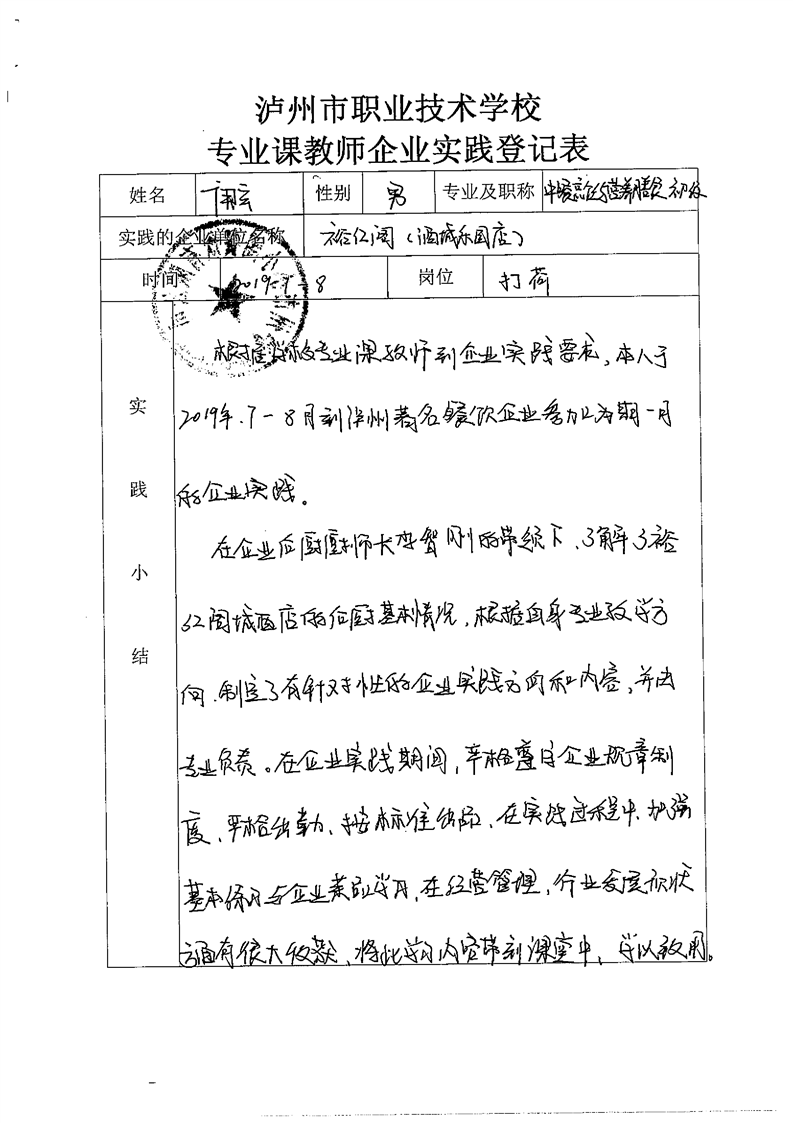 泸州市职业技术学校
专业课教师企业实践登记表
姓名 性别 男 专业及职称 中餐烹饪与营养膳食 初级
实践的企业单位名称 裕仁阁（酒城乐园店）
时间 2019.7-8 岗位 打荷
实践小结
根据学校专业课教师到企业实践要求，本人于
2019年.7-8月到泸州著名餐饮企业参加为期一月
的企业实践。
在企业后厨厨师长李智刚的带领下、了解了裕
仁阁城酒店的后厨基本情况，根据自身专业教学方
向、制定了有针对性的企业实践方向和内容，并由
专业负责。在企业实践期间，严格遵守企业规章制
度、严格出勤、按标准出品、在实践过程中、加强
基本练习与企业菜品学习，在经营管理，行业发展现状
方面有很大收获、将此学习内容带到课堂中、学以致用。